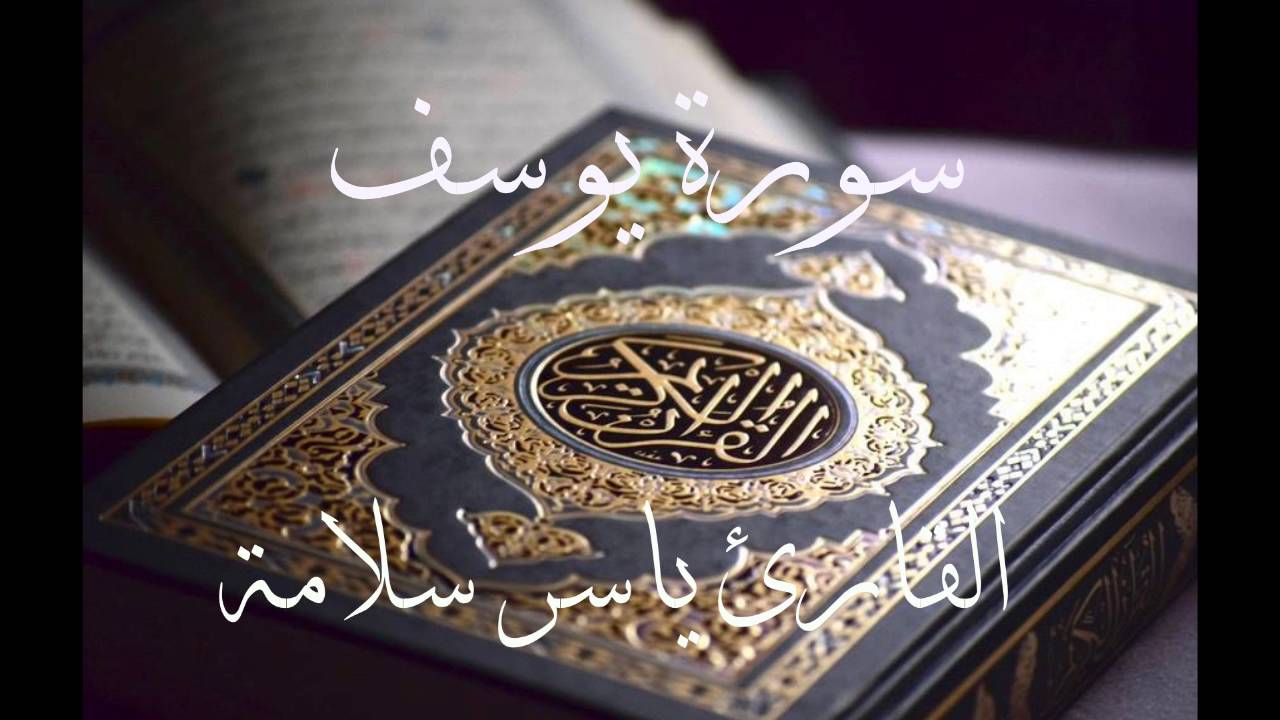 سورة يوسف
القرآن الكريم
القارئ ياسر سلامة